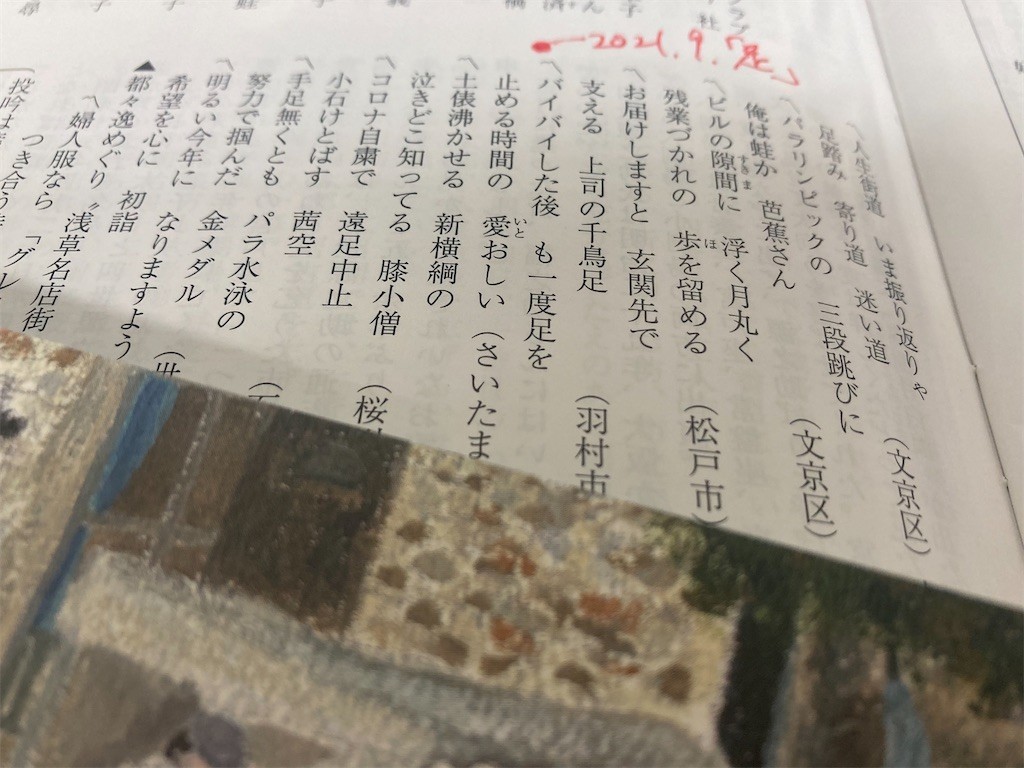 2021.9.「足」
〽人生街道　いま振り返りゃ
足踏み　寄り道　迷い道
（文京区）
〽パラリンピックの　三段跳びに
俺は蛙か　芭蕉さん
（文京区）
〽ビルの隙間に　浮く月丸く
すきま
残業づかれの　歩を留める
ほ
（松戸市）
〽お届けしますと　玄関先で
支える　上司の千鳥足
（羽村市
〽バイバイした後　も一度足を
止める時間の　愛おしい
いと
（さいたま
〽土俵沸かせる　新横綱の
泣きどこ知ってる　膝小僧
〽コロナ自粛で　遠足中止
小石けとばす　茜空
（桜
〽手足無くとも　パラ水泳の
努力で掴んだ　金メダル
〽明るい今年に　なりますよう
希望を心に　初詣
▲都々逸めぐり〝浅草名店街
〽婦人服なら　「グル
つき合う
投吟は